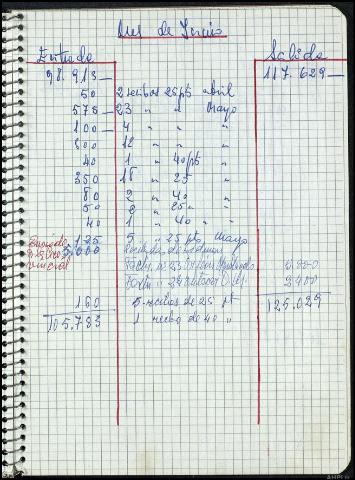 Mes de Junio
Entrada Salida
98.913 117.629
50 2 recibos 25 pts abril
575 23 " " Mayo
100 4 " " "
300 12 " " "
40 1 " 40 pts "
350 18 " 25 "
80 2 " 40 "
50 2 " 25 " "
40 1 " 40 " "
125 5 " 25 pts Mayo
5.000
2400
160 5 recibos de 25 pt 125.029
105.783 1 recibo de 40 "